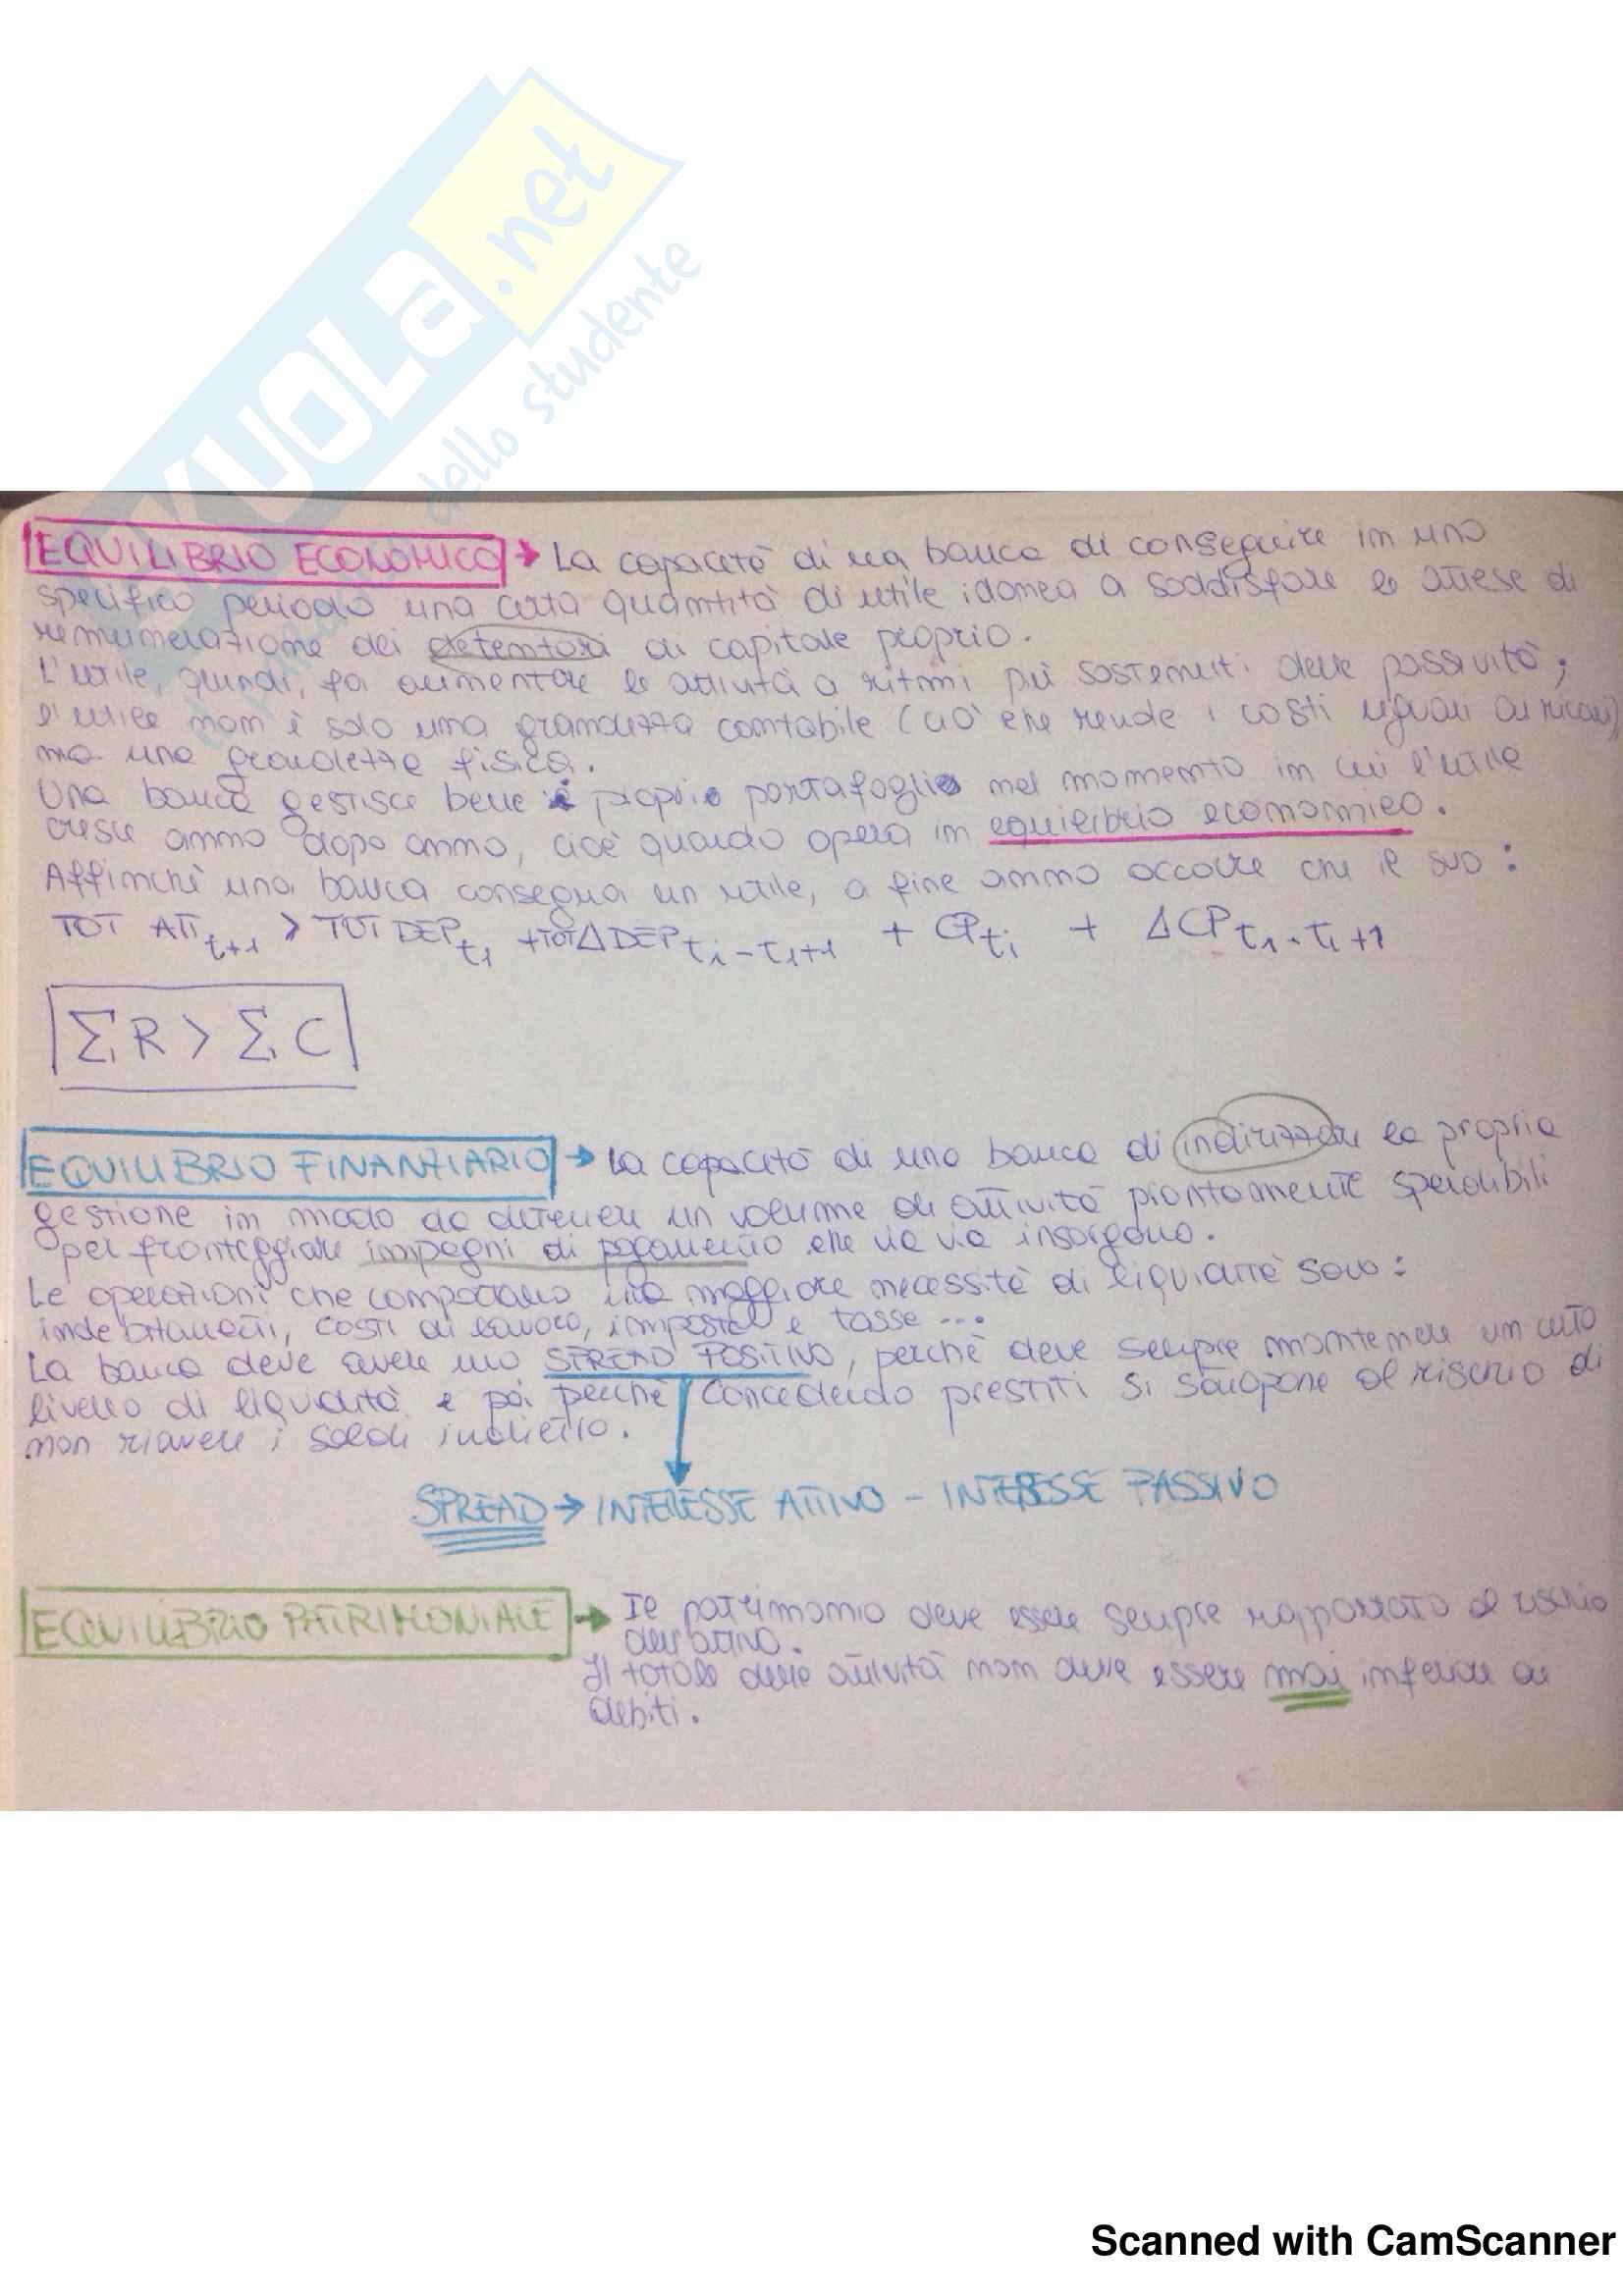 KUOLA.net
dello studente
EQUILIBRIO ECONOMICO → La capacità di una banca di conseguire in uno
specifico periodo una certa quantità di utile idonea a soddisfare le attese di
remunerazione dei detentori di capitale proprio.
L'utile, quindi, fa aumentare le attività a ritmi più sostenuti delle passività;
l'utile non è solo una grandezza contabile (ciò che rende i costi uguali ai ricavi)
ma una grandezza fisica.
Una banca gestisce bene il proprio portafoglio nel momento in cui l'utile
cresce anno dopo anno, cioè quando opera in equilibrio economico.
Affinchè una banca consegua un utile, a fine anno occorre che il suo:
TOT ATT t+1 > TOT DEP t1 + TOT Δ DEP t1 - t1+1 + CP t1 + Δ CP t1 - t1+1
Σ R > Σ C
EQUILIBRIO FINANZIARIO → La capacità di una banca di indirizzare la propria
gestione in modo da detenere un volume di attività prontamente spendibili
per fronteggiare impegni di pagamento che via via insorgono.
Le operazioni che comportano una maggiore necessità di liquidità sono:
indebitamenti, costi di lavoro, imposte e tasse ...
La banca deve avere uno SPREAD POSITIVO, perchè deve sempre mantenere un certo
livello di liquidità e poi perchè concedendo prestiti si sottopone al rischio di
non riavere i soldi indietro.
SPREAD → INTERESSE ATTIVO - INTERESSE PASSIVO
EQUILIBRIO PATRIMONIALE → Il patrimonio deve essere sempre rapportato al rischio
dell'attivo.
Il totale delle attività non deve essere mai inferiore ai
debiti.
Scanned with CamScanner